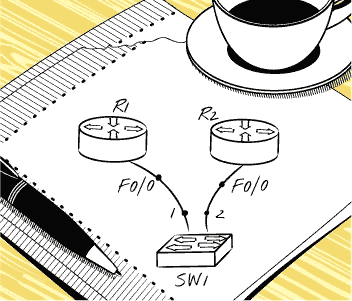 R1
R2
F0/0
F0/0
1
2
SW1